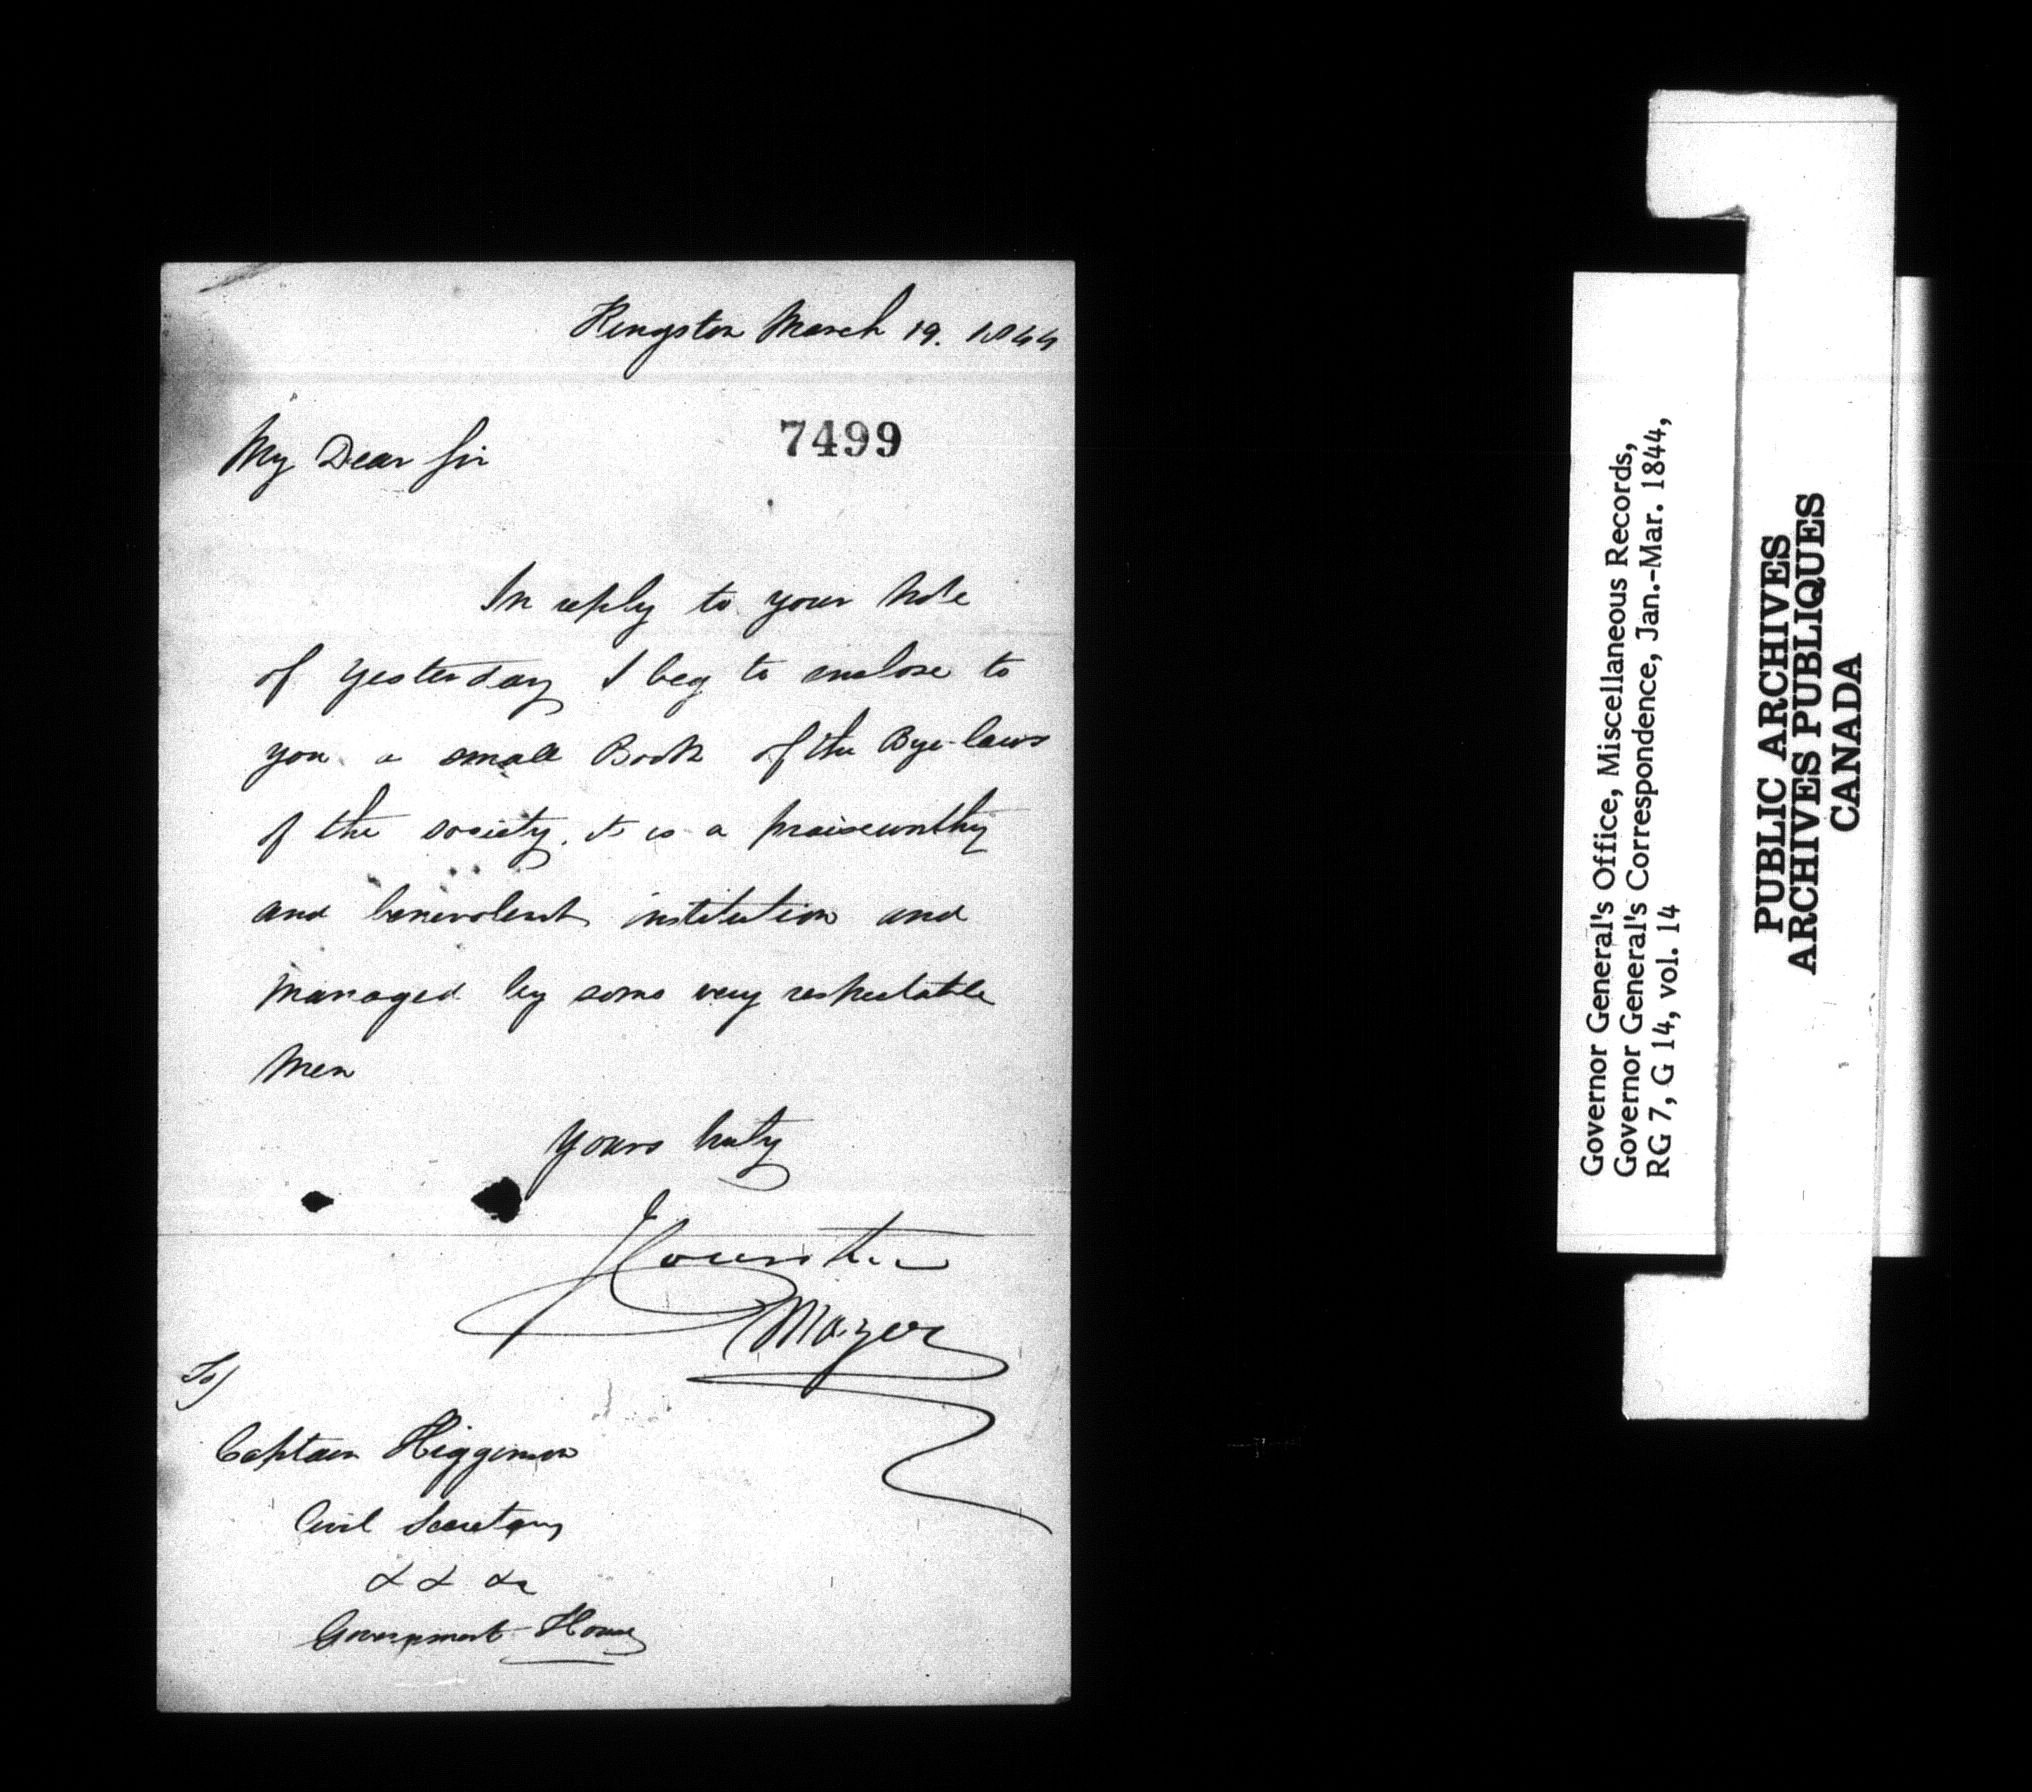 Kingston March 19. 1844
7499
My Dear Sir
In reply to your Note
of yesterday I beg to enclose to
you a small Book of the Bye-laws
of the society. it is a praiseworthy
and benevolent institution and
managed by some very respectable
Men
Yours truly
Mayor
To/
Captain Higginson
Civil Secretary
& & &c
Government House
Governor General's Office, Miscellaneous Records,
Governor General's Correspondence, Jan.-Mar. 1844,
RG 7, G 14, vol. 14
PUBLIC ARCHIVES
ARCHIVES PUBLIQUES
CANADA